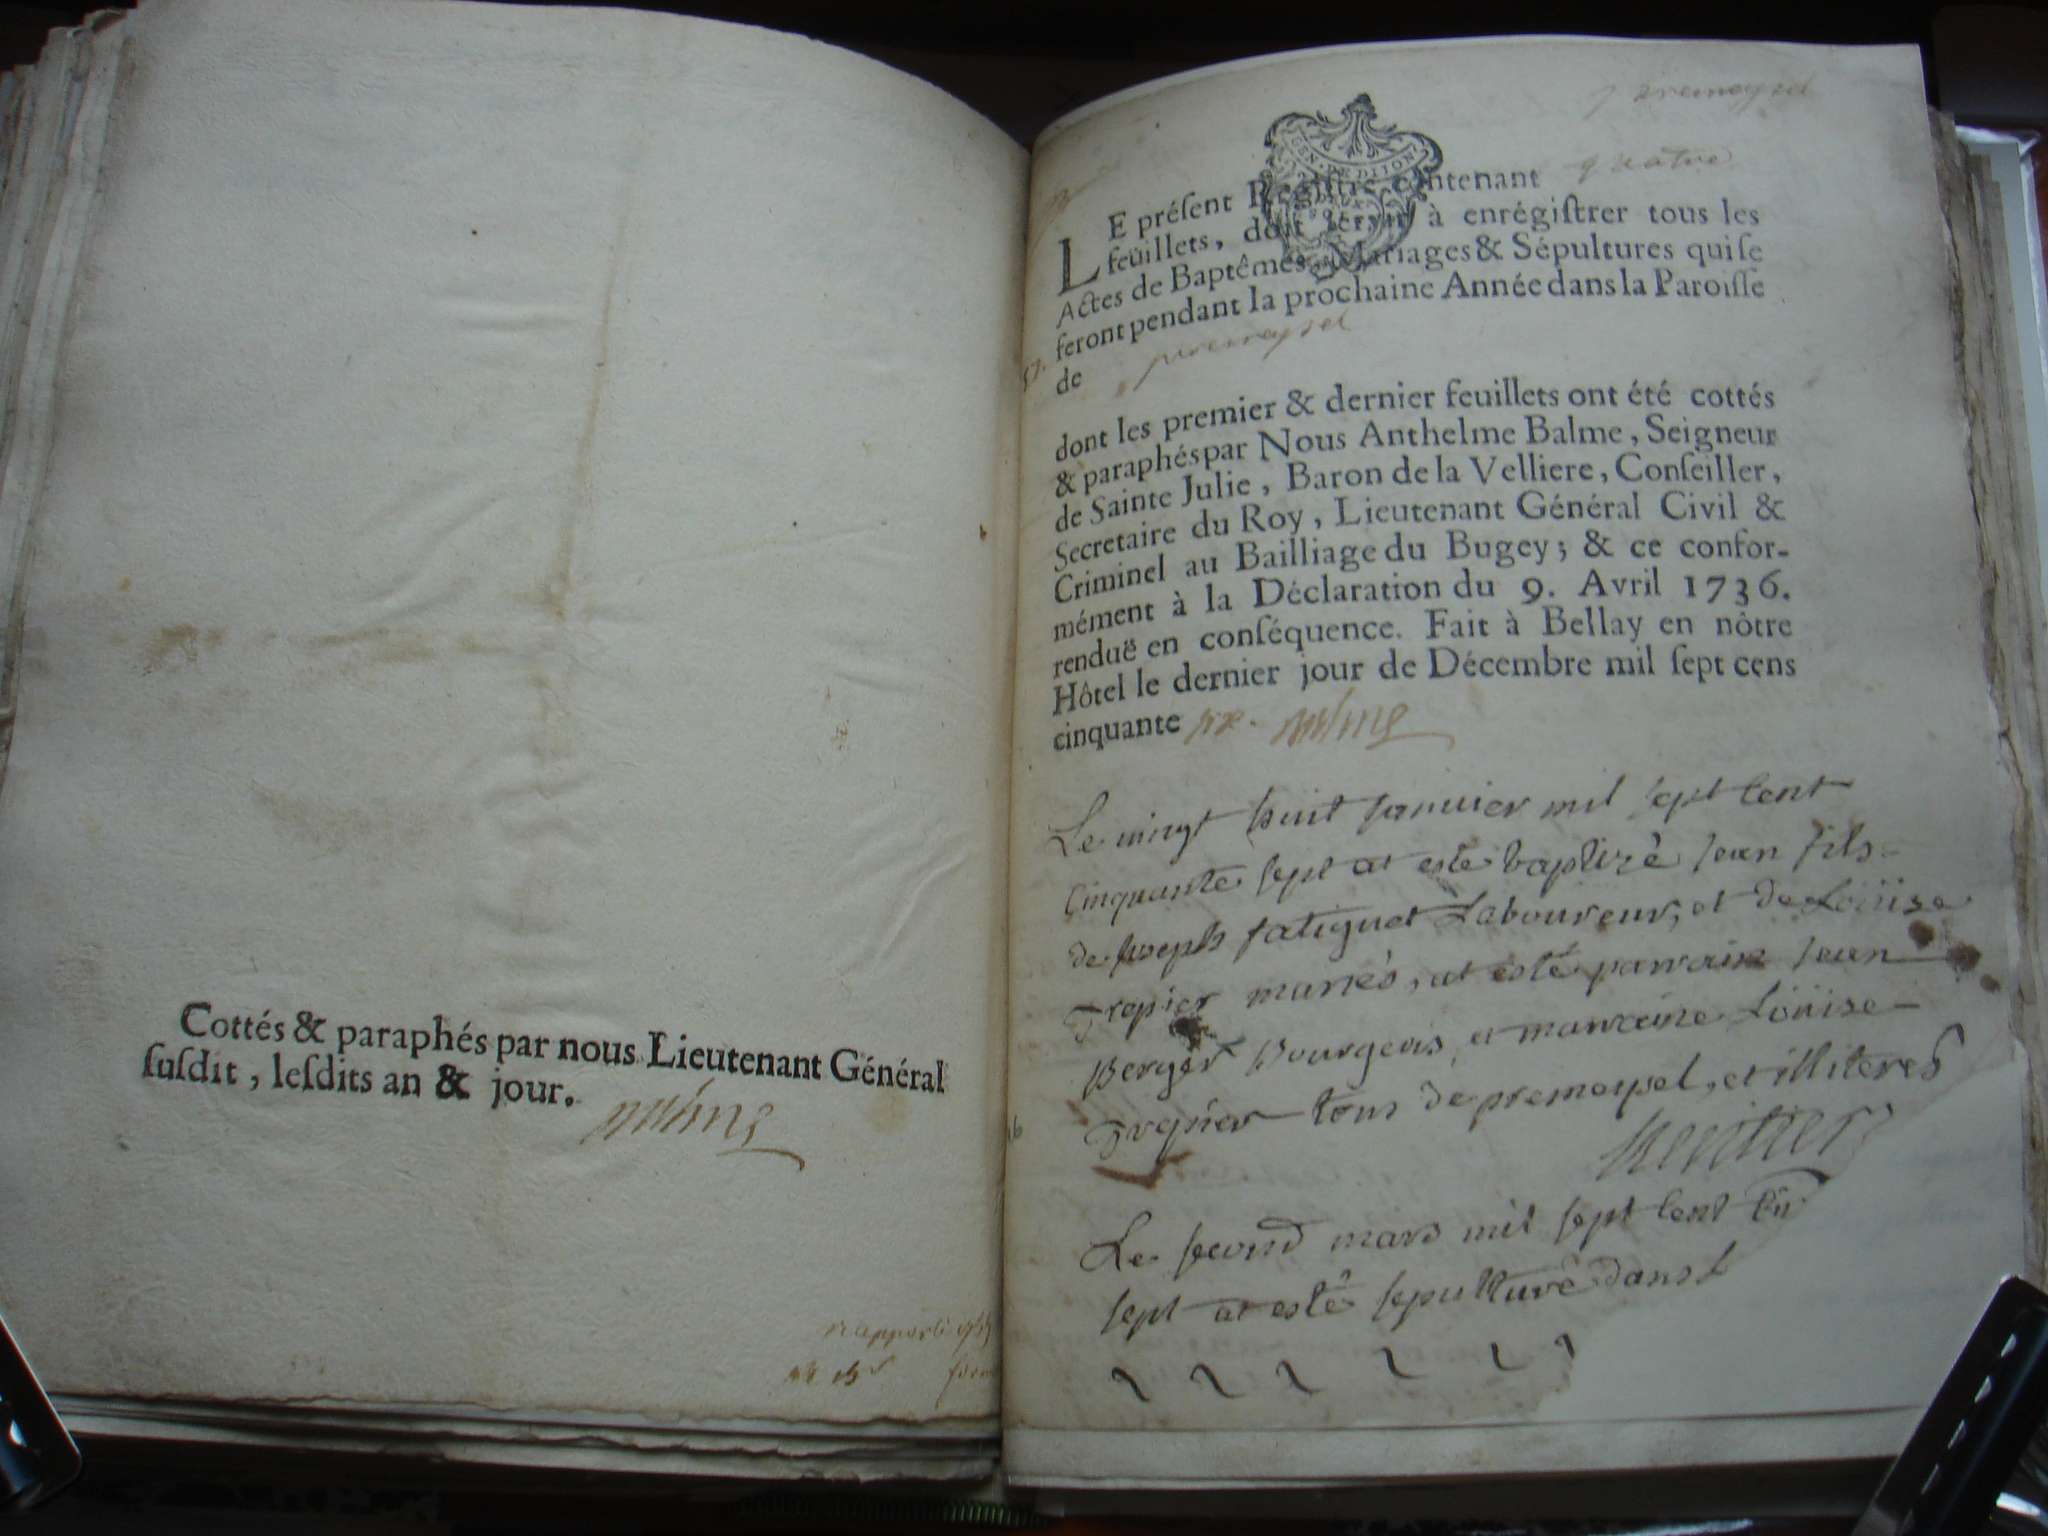 Cottés & paraphés par nous Lieutenant Général
ſuſdit, leſdits an & jour.
GEN
quatre
LE préſent Regiſtre contenant
feüillets, doit ſervir à enrégiſtrer tous les
Actes de Baptêmes, Mariages & Sépultures qui ſe
feront pendant la prochaine Année dans la Paroiſſe
de premeyzel
dont les premier & dernier feuillets ont été cottés
& paraphés par Nous Anthelme Balme, Seigneur
de Sainte Julie, Baron de la Velliere, Conſeiller,
Secretaire du Roy, Lieutenant Général Civil &
Criminel au Bailliage du Bugey; & ce confor-
mément à la Déclaration du 9. Avril 1736.
renduë en conſéquence. Fait à Bellay en nôtre
Hôtel le dernier jour de Décembre mil ſept cens
cinquante six.
Le vingt huit Janvier mil sept Cent
Cinquante sept at esté baptizé Jean fils
de Joseph fatiguet Laboureur, et de Loüise
Trepier mariés, at esté parrain Jean
Berger Bourgeois et marraine Loüise
Trepier tous de premeyzel, et illiteres
Le second mars mil sept Cent
sept at esté sepulturé dans